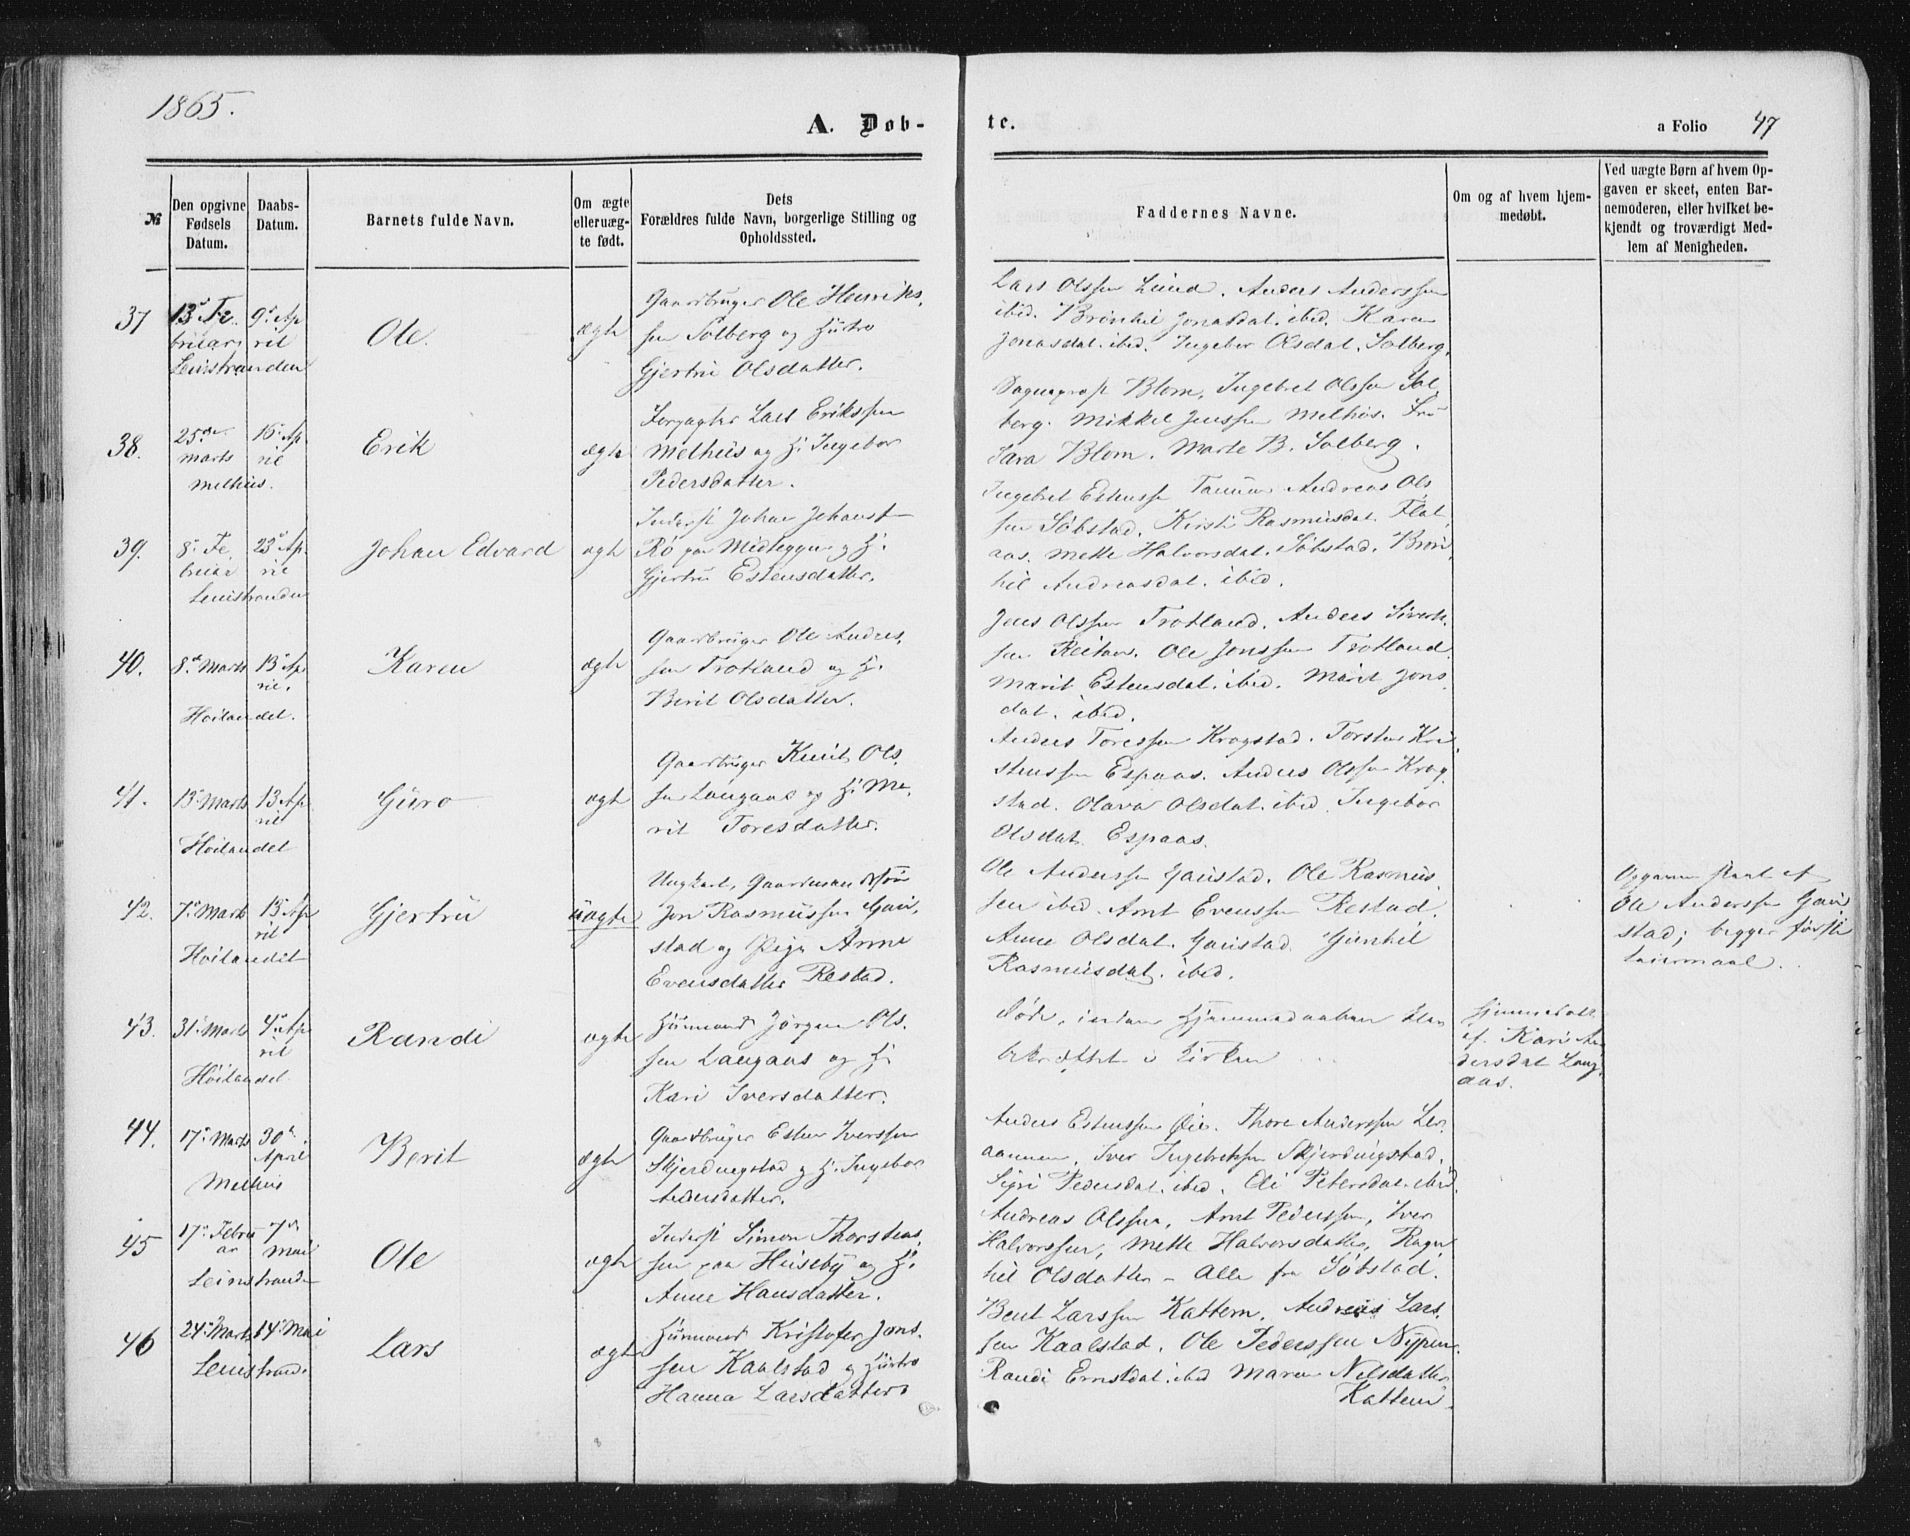 1865.
A. Døb-
te.
a Folio 47
№
Den opgivne Fødsels Datum.
Daabs-Datum.
Barnets fulde Navn.
Om ægte eller uæg-te født.
Dets Forældres fulde Navn, borgerlige Stilling og Opholdssted.
Faddernes Navne.
Om og af hvem hjem-medøbt.
Ved uægte Børn af hvem Op-gaven er skeet, enten Bar-nemoderen, eller hvilket be-kjendt og troværdigt Med-lem af Menigheden.
37
13de Fe-
bruar
Leinstranden
9de Ap
ril
Ole.
ægte
Gaardbruger Ole Henriks-
sen Solberg og Hustro
Gjertru Olsdatter.
Lars Olssen Lund. Anders Anderssen
ibid. Brønhil Jonasdat. ibid. Karen
Jonasdat. ibid. Ingebor Olsdat. Solberg.
38.
25de
Marts
Melhus.
16de Ap
ril
Erik
ægte
Lars Erikssen
Melhus og H. Ingebor
Pedersdatter.
Blom, Ingebret Olssen Sol
berg. Mikkel Jenssen Melhus. Fru
Sara Blom. Marte B. Solberg.
39.
8de Fe
bruar
Leinstranden
23de Ap
ril
Johan Edvard
ægte
Inderst Johan Johanset
Rø paa Midteggen og H.
Gjertru Estensdatter.
Ingebret Estenssen Andreas Ols
sen Søbstad. Kirsti Rasmusdat. Flat
aas. Mette Halvorsdat. Søbstad. Brøn
hil Andreasdat. ibid.
40.
8de Marts
Høilandet.
13de Ap
ril.
Karen
ægte
Gaardbruger Ole Anders
sen Trotland og H.
Berit Olsdatter.
Jens Olssen Trotland. Anders Siverts
sen Reitan. Ole Jonssen Trotland.
Marit Estensdat. ibid. Marit Jons
dat. ibid.
41.
13de Marts
Høilandet
13 Ap
ril
Guro
ægte
Gaardbruger Knut Ols
sen Langaas og H. Ma-
rit Toresdatter.
Anders Toressen Krogstad. Torsten Kri
stenssen Espaas. Anders Olssen Krog
stad. Olava Olsdat. ibid. Ingebor
Olsdat. Espaas.
42.
7de Marts
Høilandet
13 Ap
ril
Gjertru
uægte
Ungkarl, Gaardmandssøn
Jon Rasmussen Gau-
stad og Pige Anne
Evensdatter Restad.
Ole Anderssen Gaustad. Ole Rasmus
sen ibid. Arnt Evenssen Restad.
Anne Olsdat. Gaustad. Gunhil
Rasmusdat. ibid.
Opgaven skeet af
Ole Anderssen Gau
stad; begges første
Leiermaal.
43.
31 Marts
Høilandet
4de Ap
ril
Randi
ægte
Husmand Jørgen Ols
sen Langaas og H.
Kari Iversdatter.
Døde, inden Hjemmedaaben blev
bekræftet i Kirken
Hjemmedøbt
af Kari An
dersdat Lang
aas.
44.
17de Marts
Melhus
30te
April
Berit
ægte
Gaardbruger Esten Iverssen
Skjerdingstad og H. Ingebor
Andersdatter.
Anders Estenssen Øie. Thore Anderssen Ler
aannen. Iver Ingebretssen Skjerdingstad.
Sigri Pedersdat. ibid. Eli Petersdat. ibid.
45
17de Febru
ar
Leinstranden
7de
Mai
Ole
ægte
Inderst Simon Thorstens
sen paa Huseby og H.
Anne Hansdatter.
Andreas Olssen, Arnt Pederssen, Iver
Halvorssen, Mette Halvorsdatter, Ragn
hil Olsdatter – Alle fra Søbstad.
46
24de Marts
Leinstrand.
14de Mai
Lars
ægte
Husmand Kristofer Jons
sen Kaalstad og Hustro
Hanna Larsdatter
Bent Larssen Kattem. Andreas Lars
sen Kaalstad. Ole Pederssen Nypen.
Randi Ernstdat. ibid Maren Nilsdatter
Kattem.